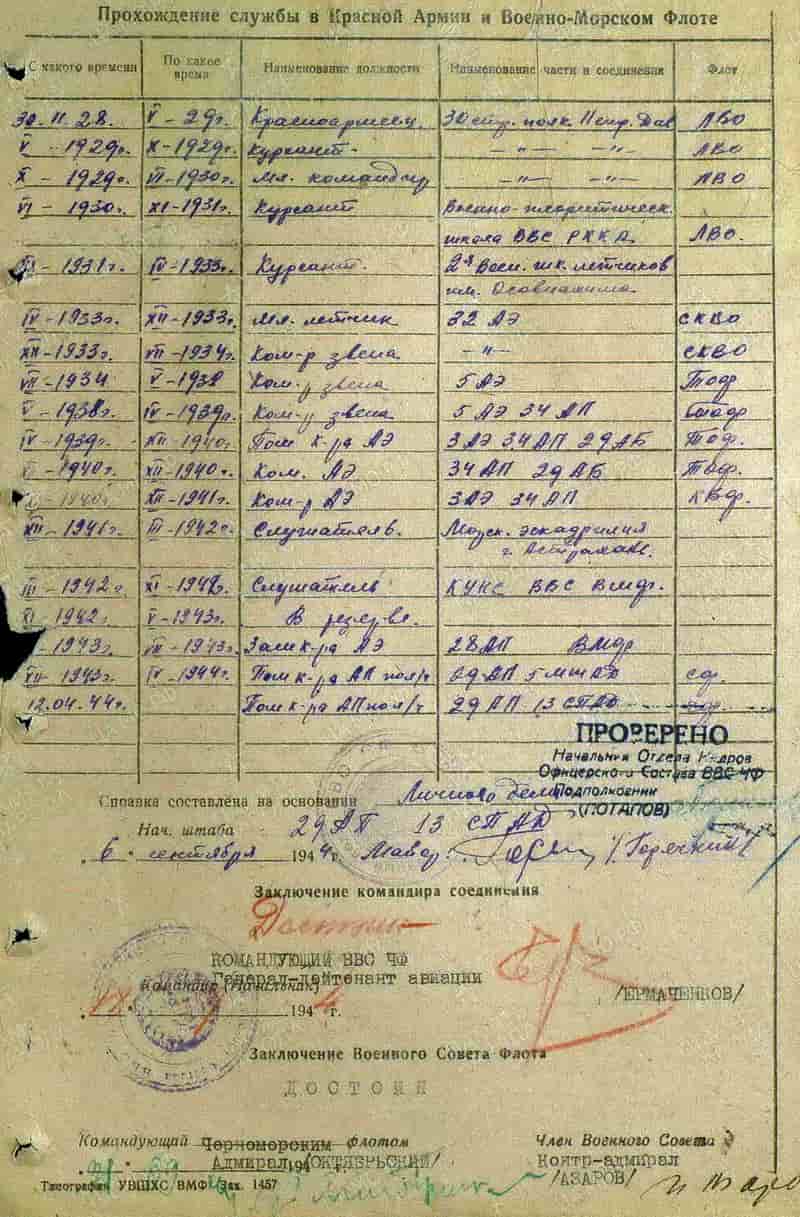 Прохождение службы в Красной Армии и Военно-Морском Флоте
С какого времени По какое время Наименование должности Наименование части и соединения Флот
30.11.28. V - 29г. Красноармеец. 30 стр. полк ЛВО
V - 1929г. X - 1929г. Курсант - -"- -"- ЛВО
X - 1929г. VI - 1930г. Мл. командир -"- -"- ЛВО
VI - 1930г. XI - 1931г. Курсант Военно-теоретическ.
школа ВВС РККА. ЛВО.
XI - 1931г. IV - 1933г. Курсант. 2я Воен. шк. летчиков
им. Осоавиахима.
IV - 1933г. XII - 1933г. Мл. летчик 32 АЭ СКВО
XII - 1933г. VII - 1934г. Ком-р звена -"- СКВО
VII - 1934 V - 1938 Ком-р звена 5 АЭ Тоф
V - 1938г. IV - 1939г. Ком-р звена 5 АЭ 34 АП
IV - 1939г. XII - 1940г. Пом к-ра АЭ 3 АЭ 34 АП 29 АБ Тоф.
1940г. XII - 1940г. Ком. АЭ 34 АП 29 АБ Тоф.
1940г. XII - 1941г. Ком-р АЭ 3 АЭ 34 АП
XII - 1941г. III - 1942г. Слушатель. эскадрилия
г. Астрахань.
III - 1942г. XI - 1942г. Слушатель КУНС ВВС ВМФ.
XI - 1942г. V - 1943г. В резерве.
- 1943г. VII - 1943г. Зам к-ра АЭ 28 АП ВМФ
VII - 1943г. IV - 1944г. Пом к-ра АП пол/ч 29 АП 5 МШАД
12.04.44г. Пом к-ра АП пол/ч 29 АП 13 СПАД
ПРОВЕРЕНО
Начальник Отдела Кадров
Офицерского Состава ВВС ЧФ
Подполковник
(ПОТАПОВ)
Справка составлена на основании Личного дела
Нач. штаба 29 АП 13 СПАД
„ 6 " сентября 1944г. Майор /Горячкий/
Заключение командира соединения
Достоин
КОМАНДУЮЩИЙ ВВС ЧФ
Генерал-лейтенант авиации
Командир (Начальник)
/ЕРМАЧЕНКОВ/
1944 г.
Заключение Военного Совета Флота
ДОСТОИН
Командующий Черноморским флотом Член Военного Совета
Адмирал 194 /ОКТЯБРЬСКИЙ/ Контр-адмирал
/АЗАРОВ/
Типография УВШХС ВМФ Зак. 1457